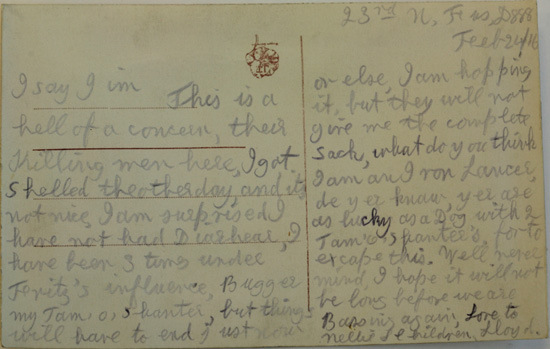 23rd N, F us, D888
Feeb 24/16
I say I im This is a
hell of a concern, their
Killing men here, I got
shelled theotherday and its
not nice, I am surprised I
have not had Diarhear, I
have been 3 times under
Fritz's influence, Bugger
my Tam o, shanter, but things
will have to end, just now
or else, I am hopping
it, but they will not
give me the complete
Sack, what do you think
I am an I ron Lancer,
de yer know, yer are
as lucky as a Dog with 2
Tam'o shanter's for to
excape this. Well never
mind, I hope it will not
be long before we are
again, Love to
Nellie & Children, Lloyd.